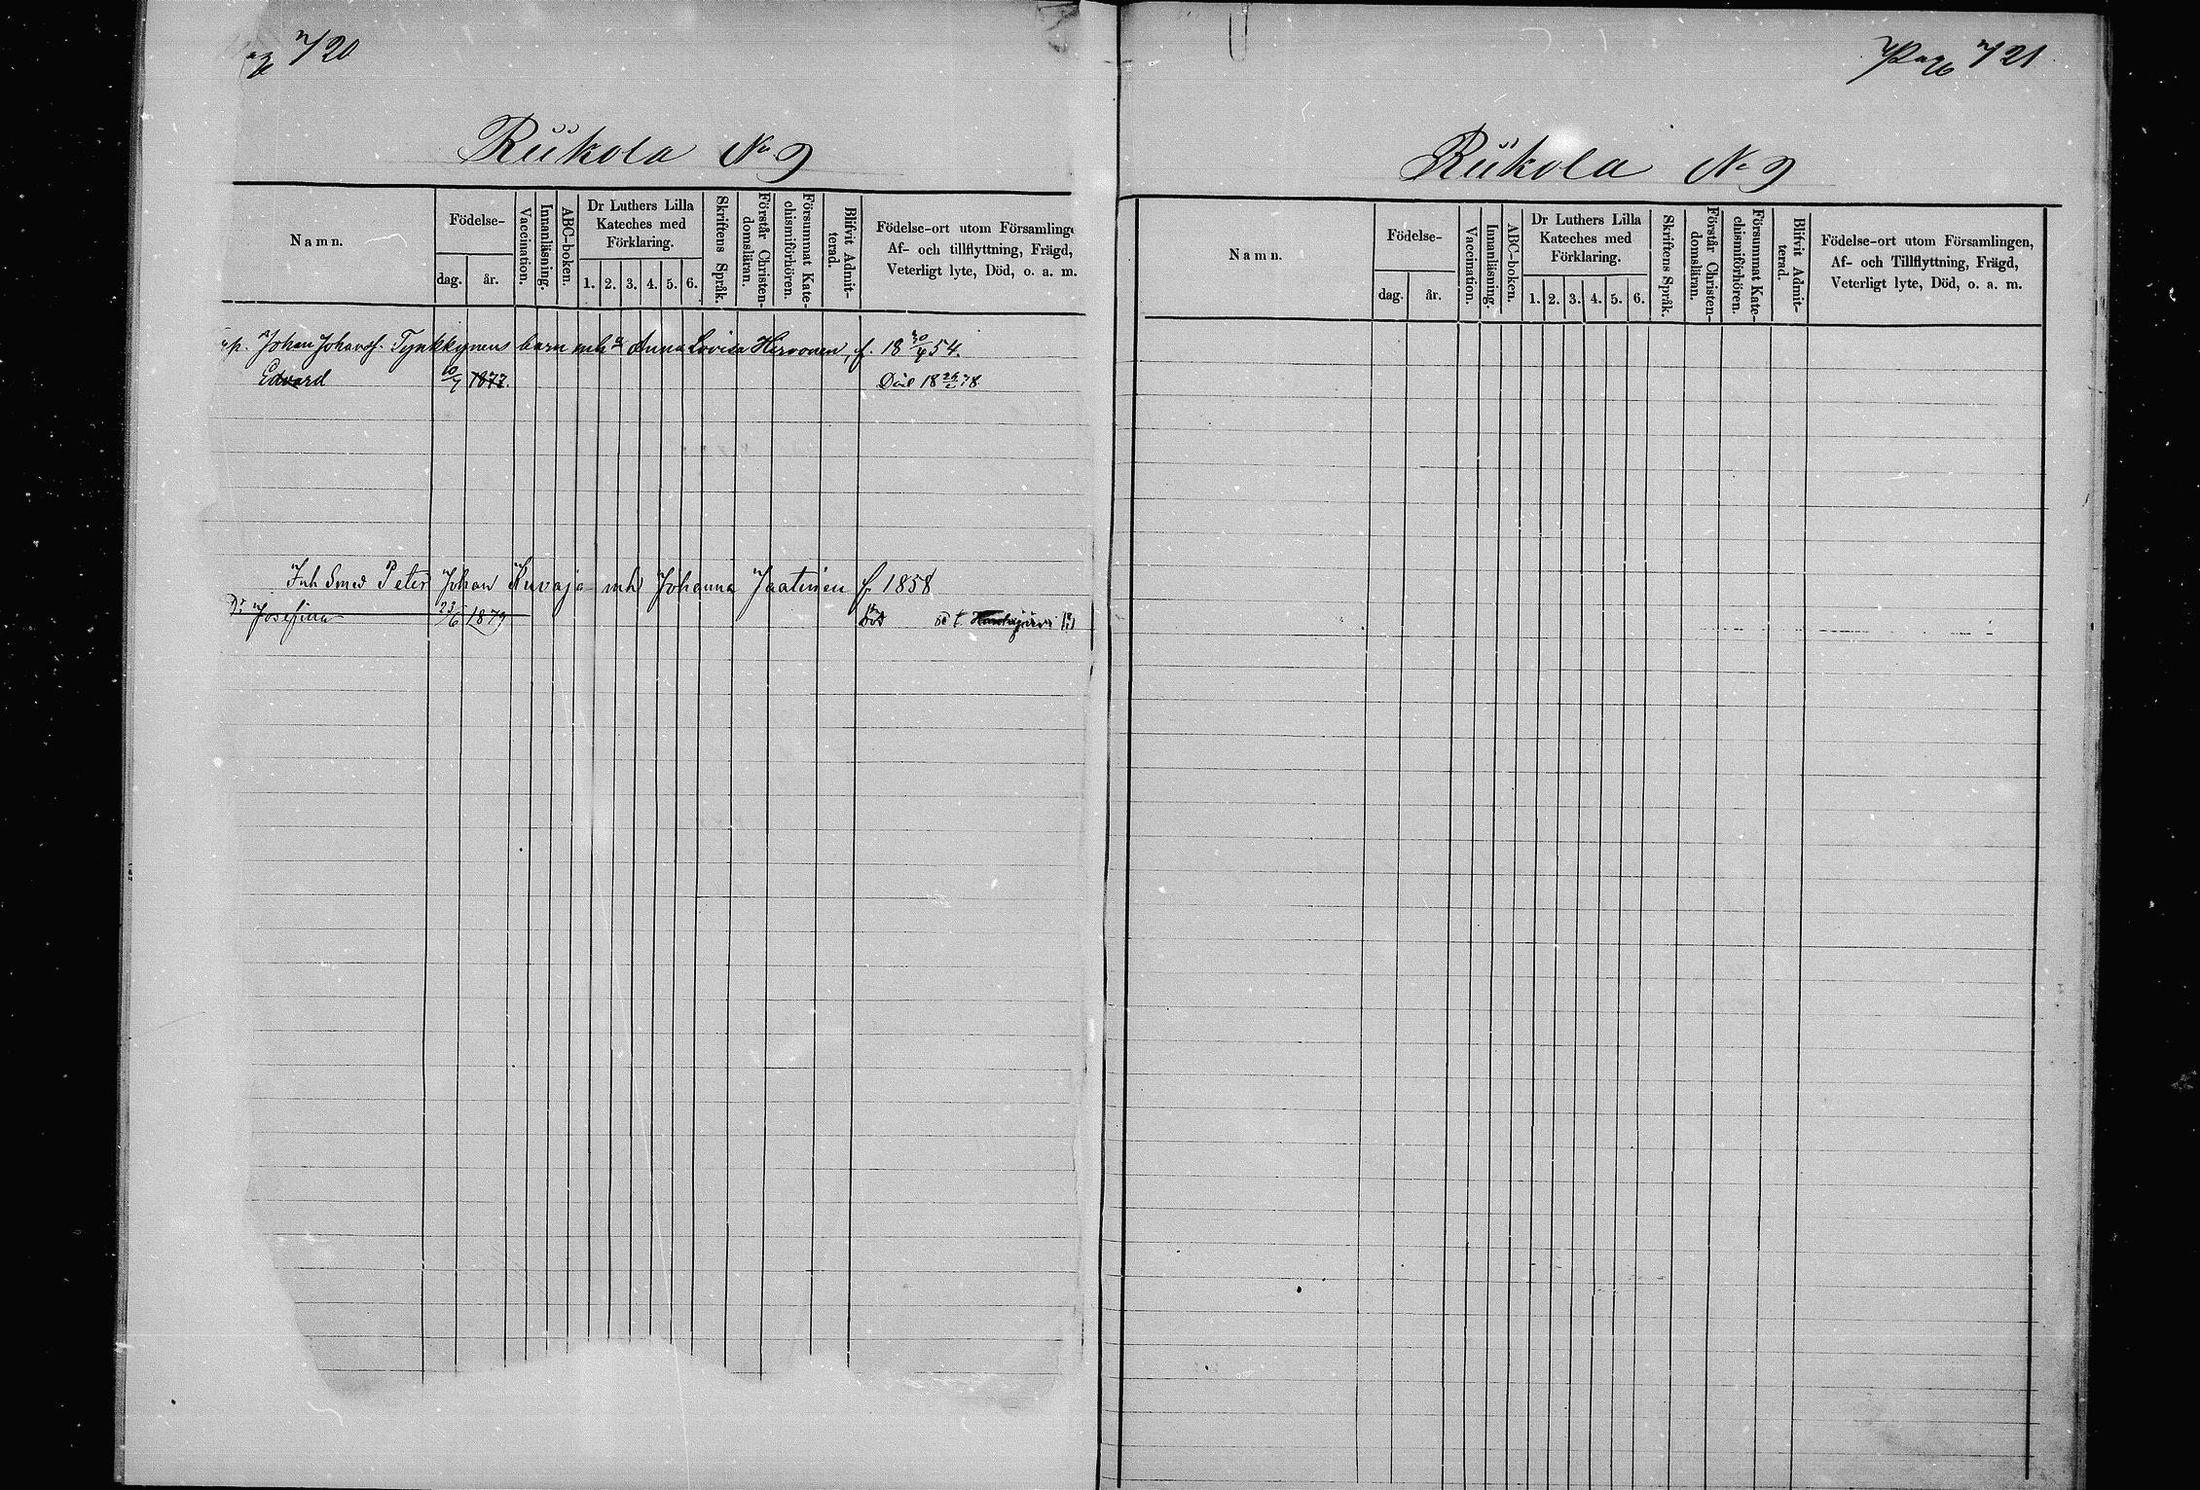 Pag 720
Riikola No 9
Namn.
Födelse-
dag.
år.
Vaccination.
Innanläsning.
ABC-boken.
Dr Luthers Lilla
Kateches med
Förklaring.
1. 2. 3. 4. 5. 6.
Skriftens Språk.
Förstår Christen-
domsläran.
Försummat Kate-
chismiförhören.
Blifvit Admit-
terad.
Födelse-ort utom Församlinge
Af- och tillflyttning, Frägd,
Veterligt lyte, Död, o. a. m.
Johan Johansf. Tynkkynens barn mh a Anna Lovisa Hirvonen, f. 18 30/4 54.
Edvard 10/7 1877. Död 18 78
Inh Smed Peter Johan Kuvaja mh Johanna Jaatinen f 1858
Dr Josefina 23/6 1879
Pag 721
Riikola No 9
Namn.
Födelse-
dag.
år.
Vaccination.
Innanläsning.
ABC-boken.
Dr Luthers Lilla
Kateches med
Förklaring.
1. 2. 3. 4. 5. 6.
Skriftens Språk.
Förstår Christen-
domsläran.
Försummat Kate-
chismiförhören.
Blifvit Admit-
terad.
Födelse-ort utom Församlingen,
Af- och Tillflyttning, Frägd,
Veterligt lyte, Död, o. a. m.